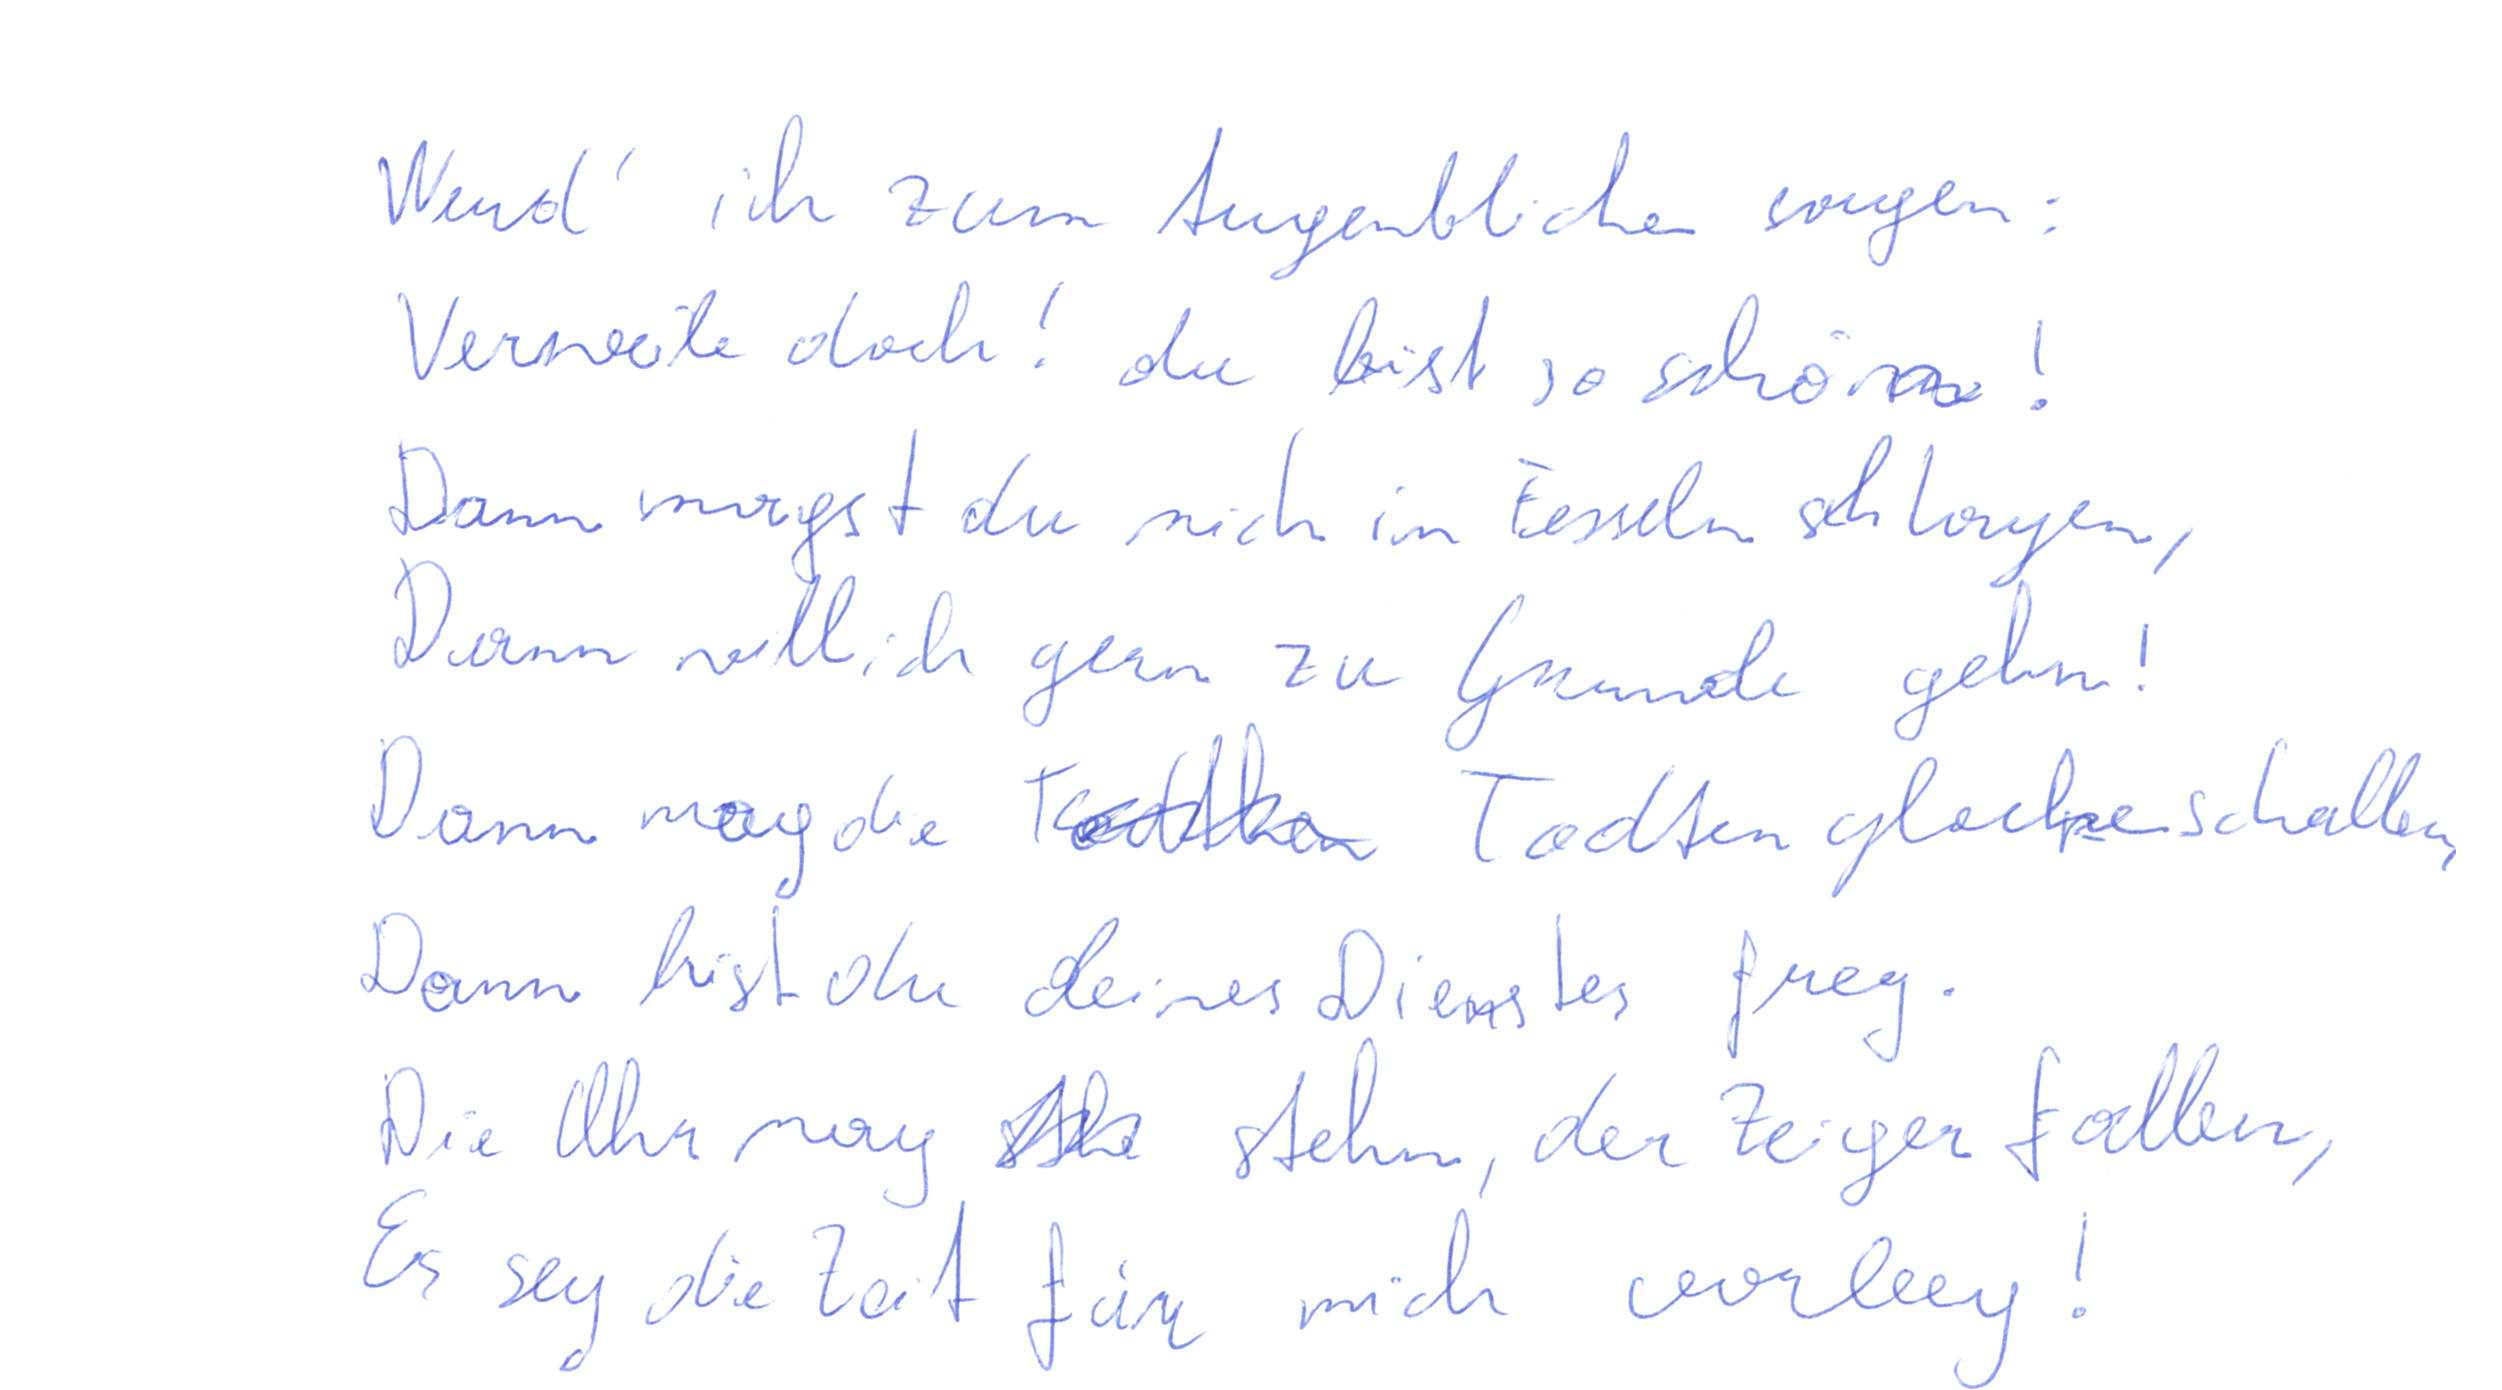 Werd' ich zum Augenblicke sagen:
Verweile doch! du bist so schön!
Dann magst du mich in Fesseln schlagen,
Dann will ich gern zu Grunde gehn!
Dann mag die Todtenglocke schallen,
Dann bist du deines Dienstes frey.
Die Uhr mag stehn, der Zeiger fallen,
Es sey die Zeit für mich vorbey!